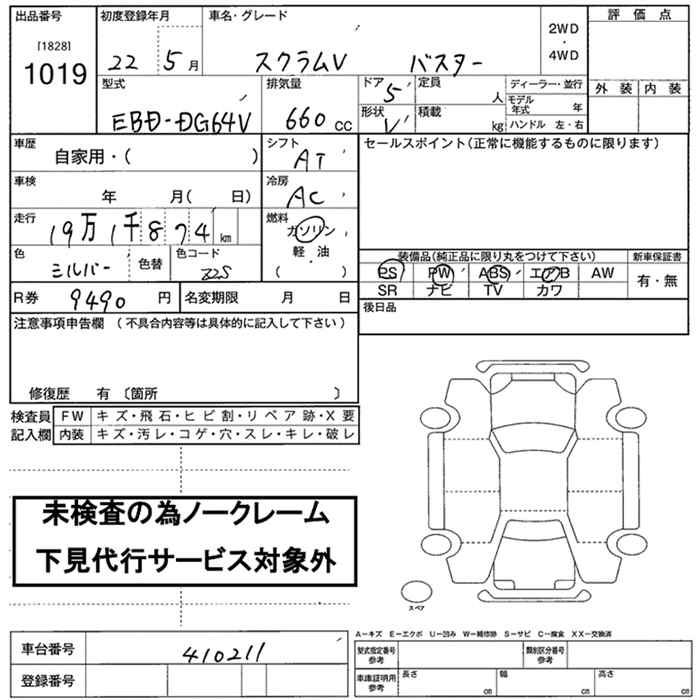 出品番号
[1828]
1019
初度登録年月
22 5月
車名・グレード
スクラムV バスター
2WD
・
4WD
評価点
外装 内装
型式
EBD-DG64V
排気量
660cc
ドア
5
形状
V
定員
人
積載
kg
ディーラー・並行
モデル年式 年
ハンドル 左・右
車歴
自家用・( )
シフト
AT
車検
年 月( 日)
冷房
AC
走行
19万1千874km
燃料
ガソリン
軽・油
( )
色
シルバー
色替
色コード
Z2S
R券 9490円
名変期限 月 日
セールスポイント(正常に機能するものに限ります)
装備品(純正品に限り丸をつけて下さい)
PS PW ABS エアB AW
SR ナビ TV カワ
新車保証書
有・無
後日品
注意事項申告欄 (不具合内容等は具体的に記入して下さい)
修復歴 有 〔箇所 〕
検査員記入欄
FW キズ・飛石・ヒビ割・リペア跡・X要
内装 キズ・汚レ・コゲ・穴・スレ・キレ・破レ
未検査の為ノークレーム
下見代行サービス対象外
スペア
車台番号 410211
登録番号
A−キズ E−エクボ U−凹み W−補修跡 S−サビ C−腐食 XX−交換済
型式指定番号
参考
類別区分番号
参考
車庫証明用
参考
長さ cm
幅 cm
高さ cm